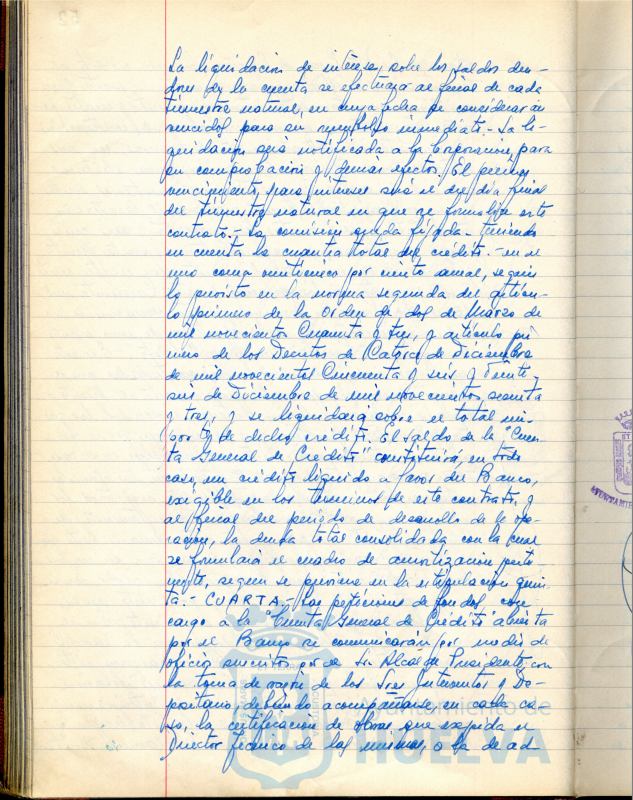 La liquidación de intereses sobre los saldos deu-
dores de la cuenta se efectuará al final de cada
trimestre natural, en cuya fecha se considerarán
vencidos para su reembolso inmediato.- La li-
quidación será notificada a la Corporación, para
su comprobación y demás efectos. El primer
vencimiento, para intereses será el del día final
del trimestre natural en que se formalice este
contrato.- La comisión queda fijada - teniendo
en cuenta la cuantía total del crédito.- en el
uno coma veinticinco por ciento anual, según
lo previsto en la norma segunda del artícu-
lo primero de la Orden de dos de Marzo de
mil novecientos Cincuenta y tres, y artículo pri
mero de los Decretos de Catorce de Diciembre
de mil novecientos Cincuenta y seis y Veinte-
seis de Diciembre de mil novecientos sesenta
y tres, y se liquidará sobre el total im-
porte de dicho crédito. El saldo de la "Cuen
ta General de Crédito" constituirá, en todo
caso, un crédito líquido a favor del Banco,
exigible en los términos de este contrato, y
al final del periodo de desarrollo de la ope-
ración, la deuda total consolidada con la cual
se formulará el cuadro de amortización perti-
nente, según se previene en la estipulación quin-
ta.- CUARTA.- Las peticiones de fondos con
cargo a la "Cuenta General de Crédito" abierta
por el Banco se comunicarán por medio de
oficio suscritos por el Sr. Alcalde Presidente, con
la toma de razón de los Sres Interventor y De-
positario, debiendo acompañarse, en cada ca-
so, la certificación de obras que expida el
Director Técnico de las mismas, o la de ad
Ayuntamiento de
HUELVA